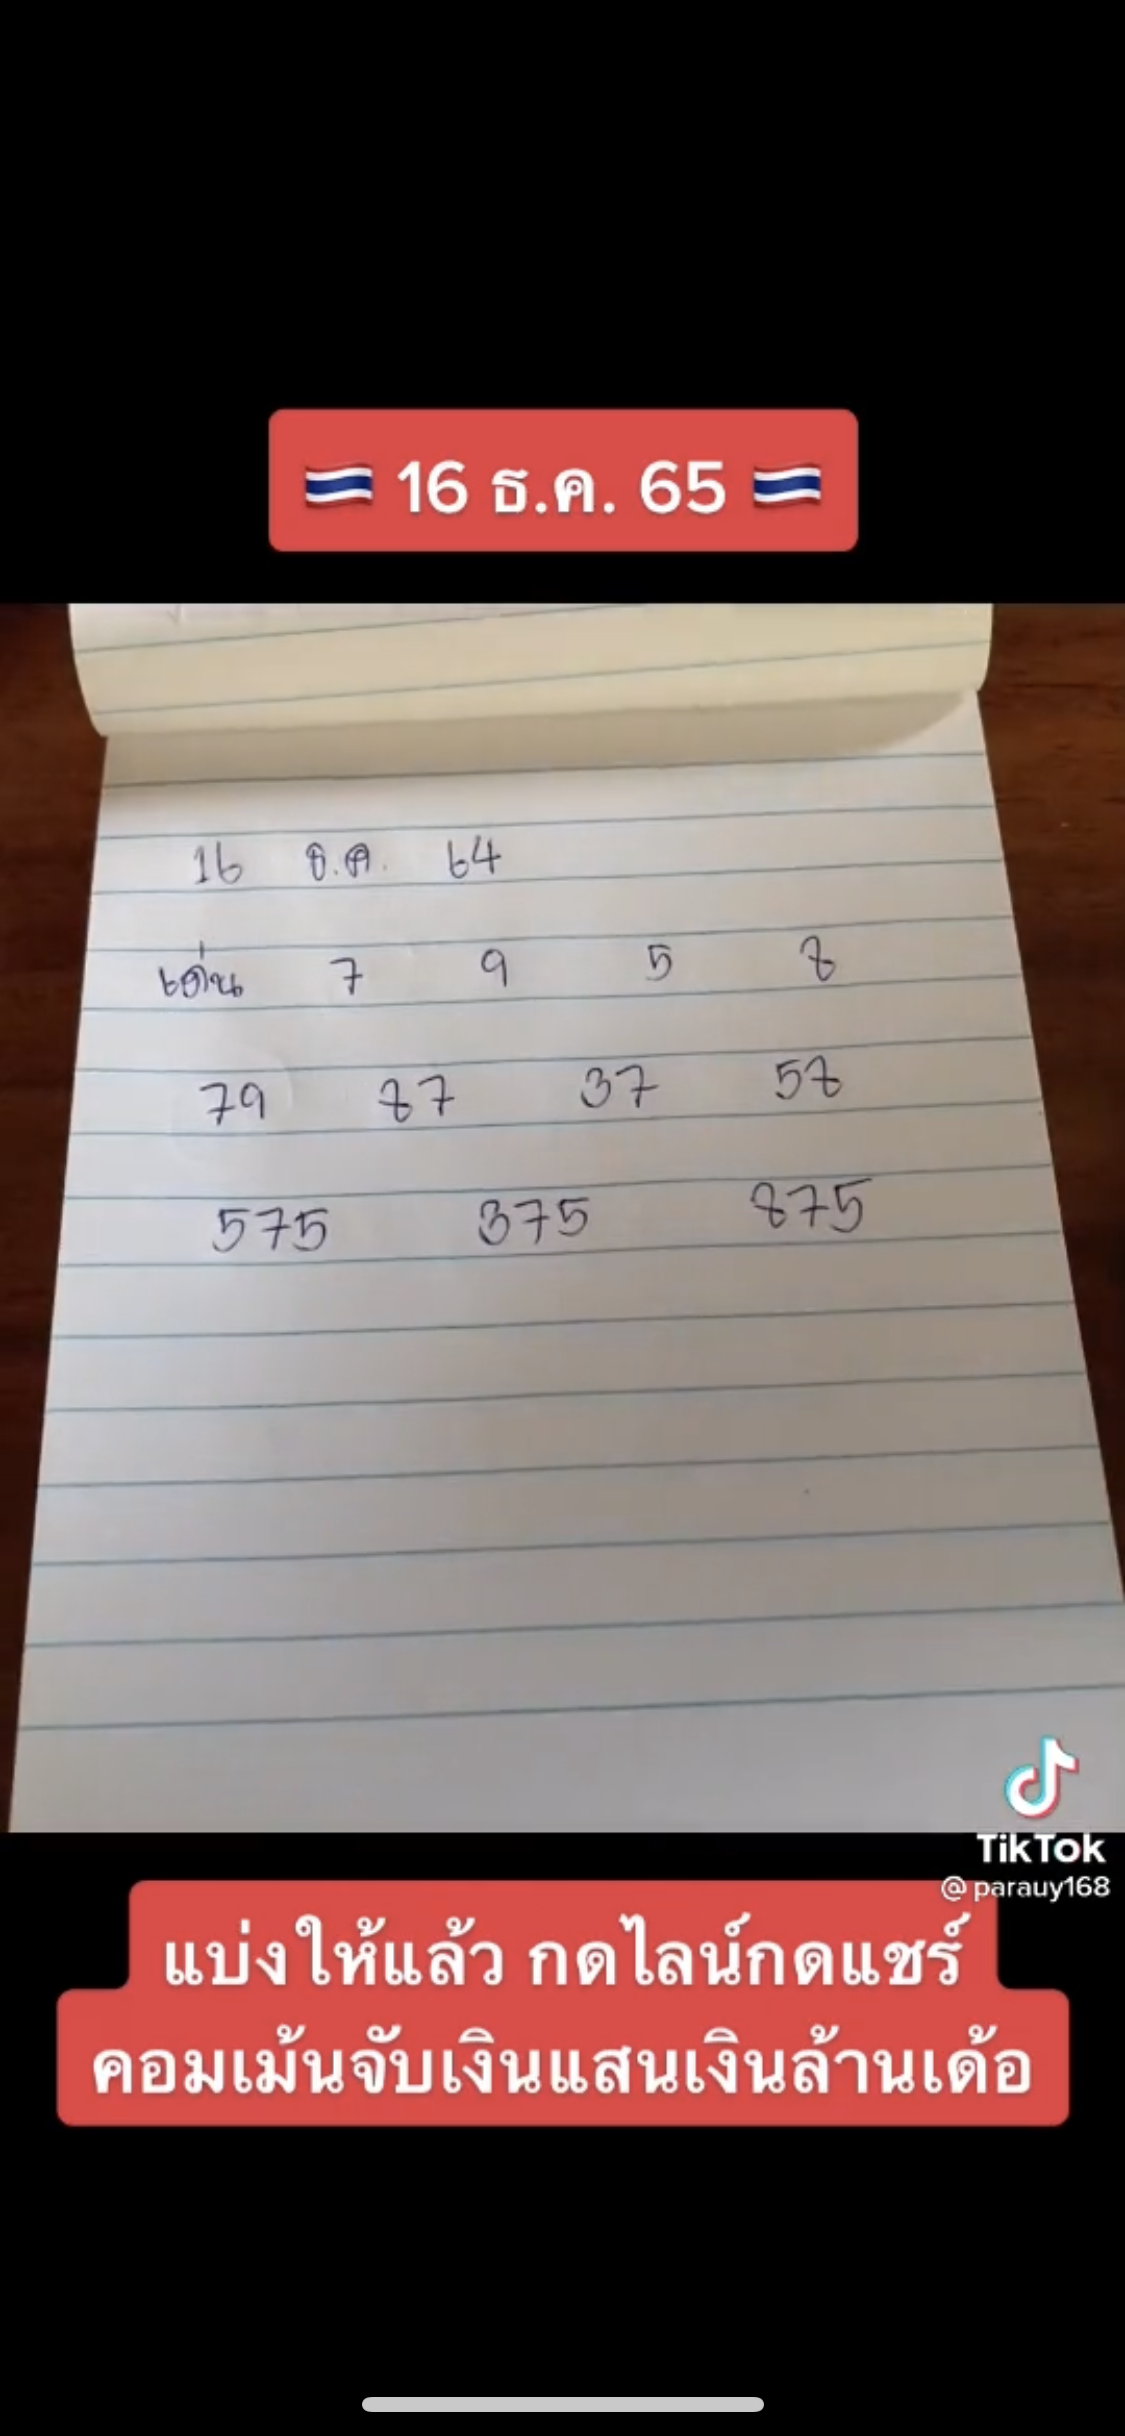 🇹🇭 16 ธ.ค. 65 🇹🇭
16 ธ.ค. 64
เด่น 7 9 5 8
79 87 37 58
575 375 875
TikTok
@parauy168
แบ่งให้แล้ว กดไลน์กดแชร์
คอมเม้นจับเงินแสนเงินล้านเด้อ